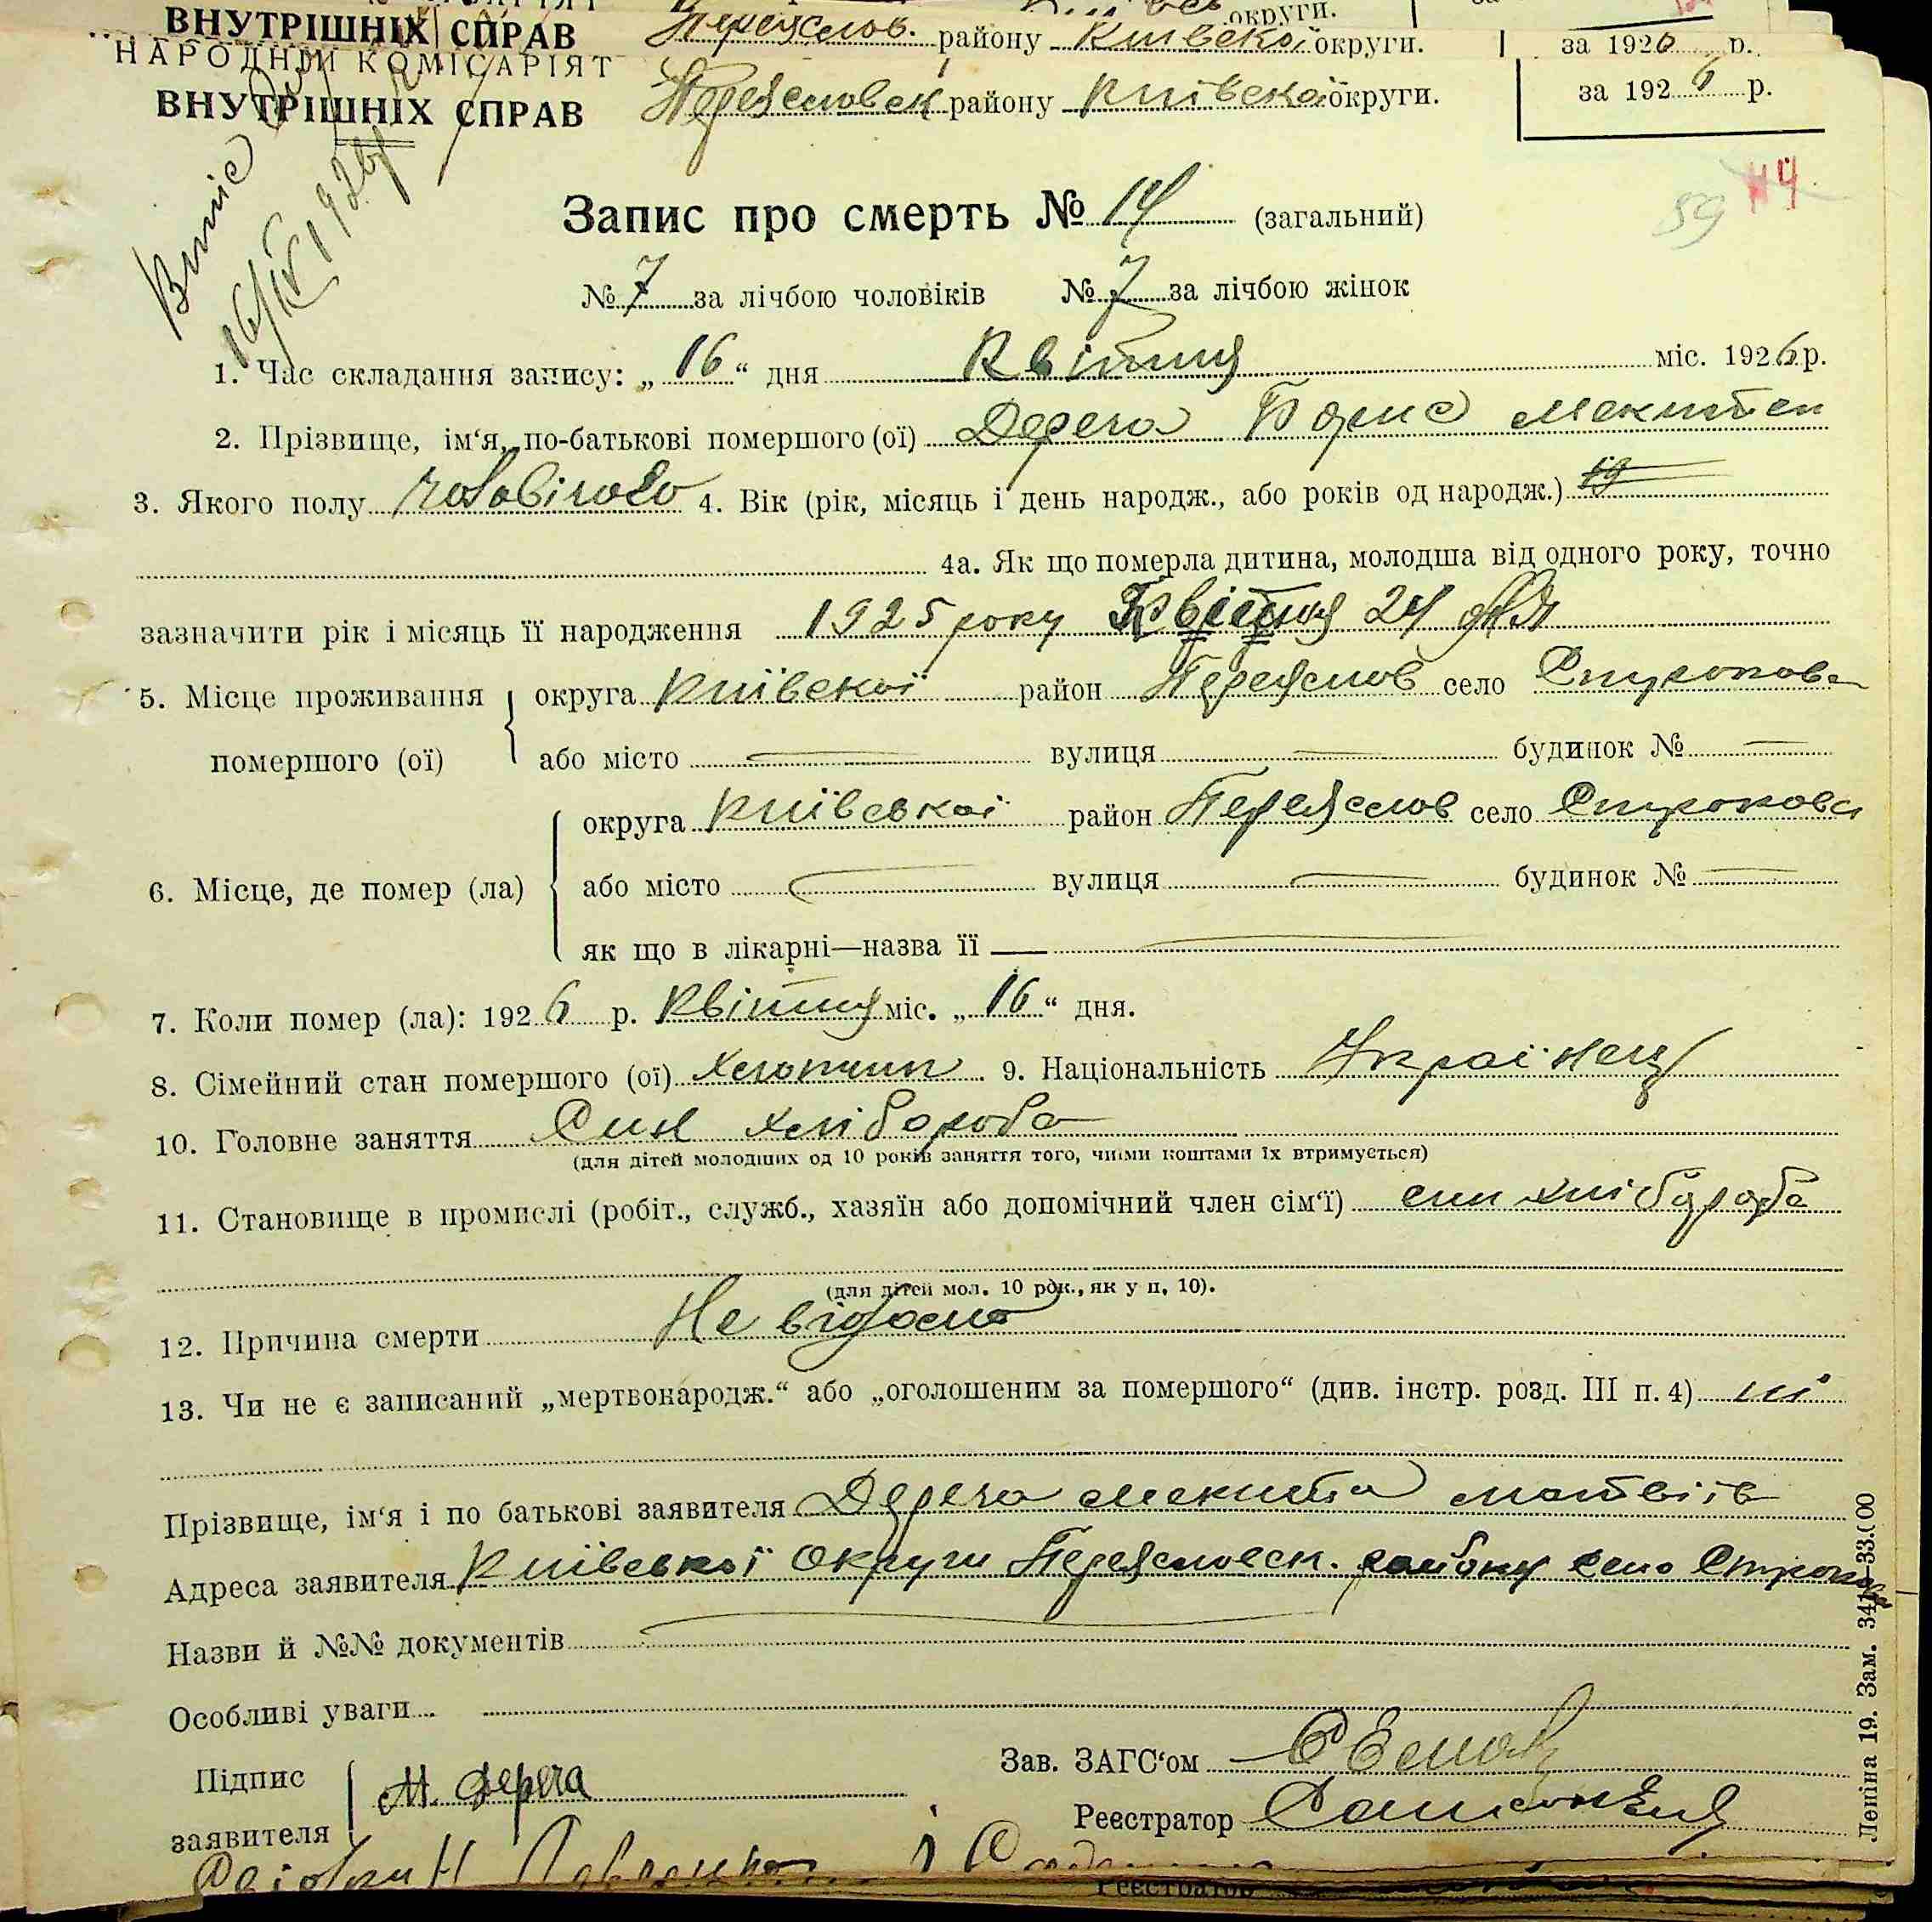 ВНУТРІШНІХ СПРАВ Переяслов. району Київської округи. за 1926 р.
НАРОДНІЙ КОМІСАРІЯТ
ВНУТРІШНІХ СПРАВ Переясловск району Київської округи. за 1926 р.
16/IV 1926
Запис про смерть № 14 (загальний)
59
№ 7 за лічбою чоловіків № 7 за лічбою жінок
1. Час складання запису: „16“ дня Квітня міс. 1926 р.
2. Прізвище, ім‘я, по-батькові помершого (ої) Дереча Борис Мекитен
3. Якого полу чоловічого 4. Вік (рік, місяць і день народж., або років од народж.) 19
4а. Як що померла дитина, молодша від одного року, точно
зазначити рік і місяць її народження 1925 року Квітня 24 дня
5. Місце проживання округа Київської район Переяслов село Строкова
помершого (ої) або місто вулиця будинок №
округа Київської район Переяслов село Строкова
6. Місце, де помер (ла) або місто вулиця будинок №
як що в лікарні—назва її
7. Коли помер (ла): 1926 р. Квітня міс. „16“ дня.
8. Сімейний стан помершого (ої) Хлопчик 9. Національність Українець
10. Головне заняття Син хлібороба
(для дітей молодших од 10 років заняття того, чиїми коштами їх втримується)
11. Становище в промислі (робіт., служб., хазяїн або допомічний член сім‘ї) син хлібороба
(для дітей мол. 10 рок., як у п. 10).
12. Причина смерти Не відомо
13. Чи не є записаний „мертвонародж.“ або „оголошеним за помершого“ (див. інстр. розд. III п. 4) ні
Прізвище, ім‘я і по батькові заявителя Дереча Мекита Матвіїв
Адреса заявителя Київської Округи Переясловск. району село Строкова
Назви й №№ документів
Особливі уваги
Підпис заявителя М. Дереча
Зав. ЗАГС‘ом
Реєстратор
Реєстратор
Леніна 19. Зам. 341—33.000